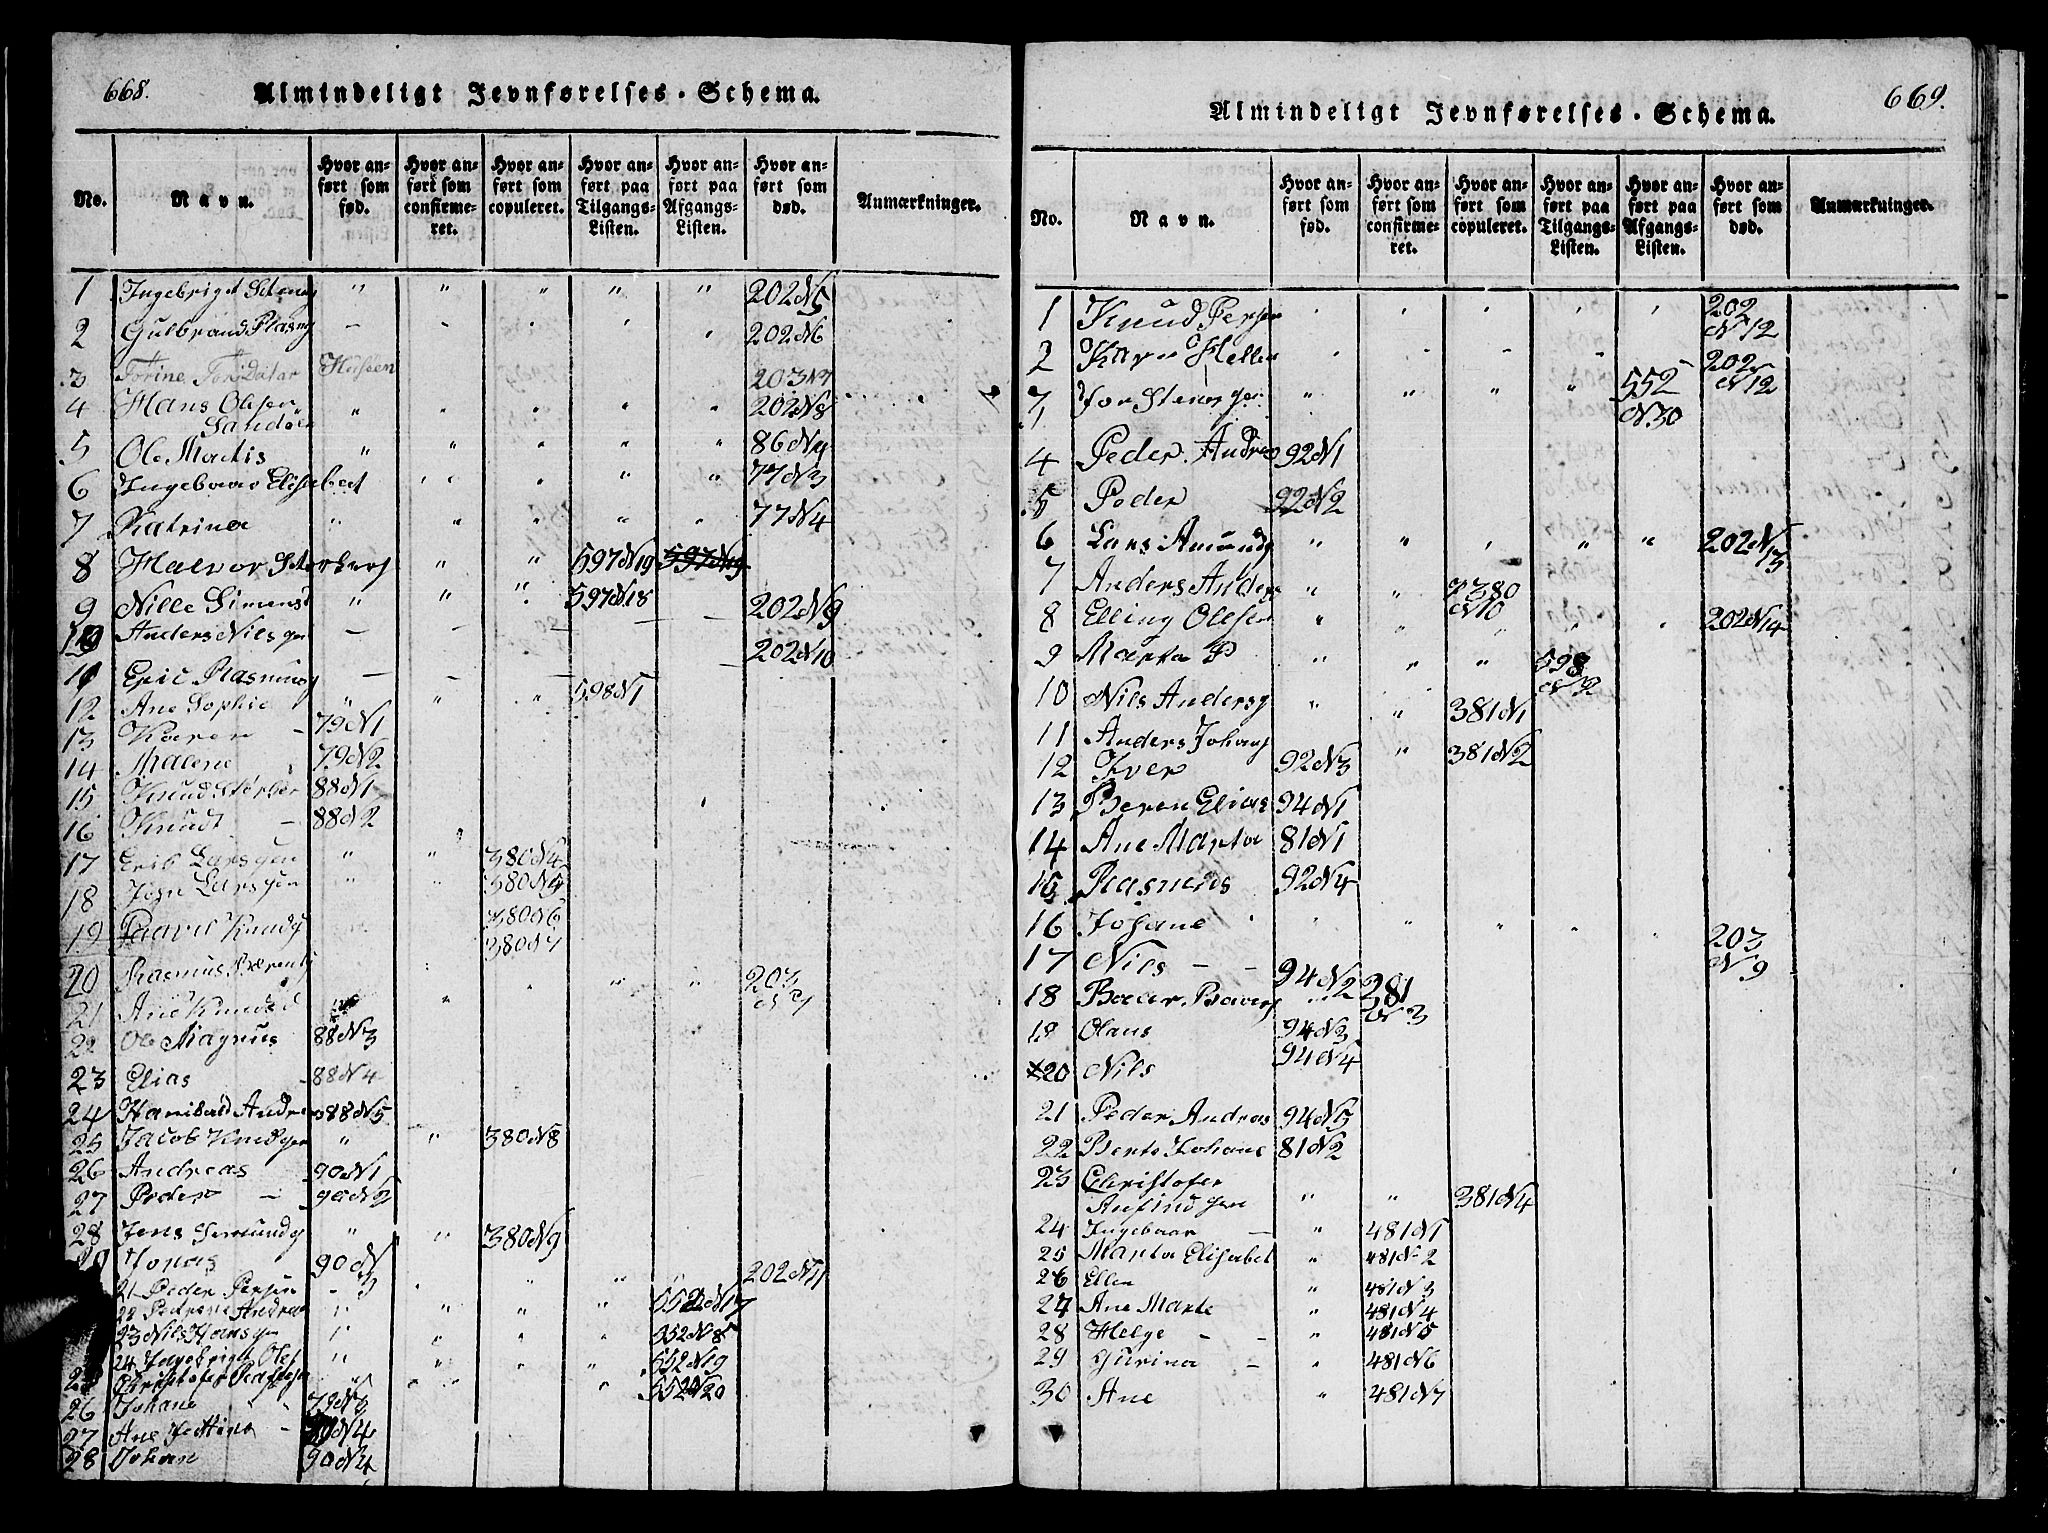 668.
Almindeligt Jevnførelses-Schema.
No. Navn. Hvor anført som fød. Hvor anført som confirmeret. Hvor anført som copuleret. Hvor anført paa Tilgangs-Listen. Hvor anført paa Afgangs-Listen. Hvor anført som død. Anmærkninger.
1 " " " " " 202 N 5
2 Gulbrand Rasmg 202 N 6
3 Torine 203 N 7
4 Hans Olesen 202 N 8
5 Ole Matis " " " " " 86 N 4
6 Ingebaar Elisabet " " " " 77 N 3
7 Katrina " " " " " 77 N 4
8 Halvor " " 597 N 19 597 N 19
9 Nille Simensd " " " 597 N 18 202 N 9
10 Anders Nilsgn — — 202 N 10
11 Eric Rasmusg — — —
12 Ane Sophie " " " 598 N 1
13 Karen 79 N 1
14 Malene 79 N 2
15 Knud 88 N 1
16 Knudt — 88 N 2
17 Erik Larsgen " " 380 N 4
18 Larsgen " " 380 N 5
19 Knudg 380 N 6
380 N 7
20 Rasmus " " " " 203
21 Ane Knudsd
22 Ole Magnus 88 N 3
23 Elias — 88 N 4
24 Andre 88 N 5
25 Jacob Knudgen " " 380 N 8
26 Andreas 90 N 1
27 Peder — 90 N 2
28 Jens " " 380 N 9
Jonas 90 N 3
21 Peder Persen 202 N 11
22 Andrea " " " " 552 N 17
23 Nils Hansgen " " " " 552 N 18
24 Ingebrigt Oles " " " " 552 N 19
Christofer " " " " 552 N 20
26 Johane 79 N 3
27 Ane N 4
28 Johan 90 N 4
669.
Almindeligt Jevnførelses-Schema.
No. Navn. Hvor anført som fød. Hvor anført som confirmeret. Hvor anført som copuleret. Hvor anført paa Tilgangs-Listen. Hvor anført paa Afgangs-Listen. Hvor anført som død. Anmærkninger.
1 Knud Persen 202 N 12
2 Karen 202 N 12
3 " " " " 552 N 30
4 Peder Andreas 92 N 1
5 Peder 92 N 2
6 Lars Amundg " " " " " 202 N 13
7 Anders Anders " " 380 N 10
8 Elling Olesen " " " " " 202 N 14
9 Marta P " " " 598 N 2
10 Nils Andersg " " 381 N 1
11 Anders Johans " 381 N 2
12 Iver 92 N 3
13 Beren Elias 94 N 1
14 Ane Marta 81 N 1
15 Rasmus 92 N 4
16 Johane " " " " " 203 N 9
17 Nils — — 94 N 2
18 " 281 N 3
19 Olaus 94 N 3
20 Nils 94 N 4
21 Peder Andreas 94 N 5
22 Berte Johane 81 N 2
23 Christofer
Anfindsen " " 381 N 4
24 Ingebaar — " 481 N 1
25 Marta Elisabet " 481 N 2
26 Ellen " 481 N 3
27 Ane Marte " 481 N 4
28 Helge — — " 481 N 5
29 Gurina — " 481 N 6
30 Ane " 481 N 7